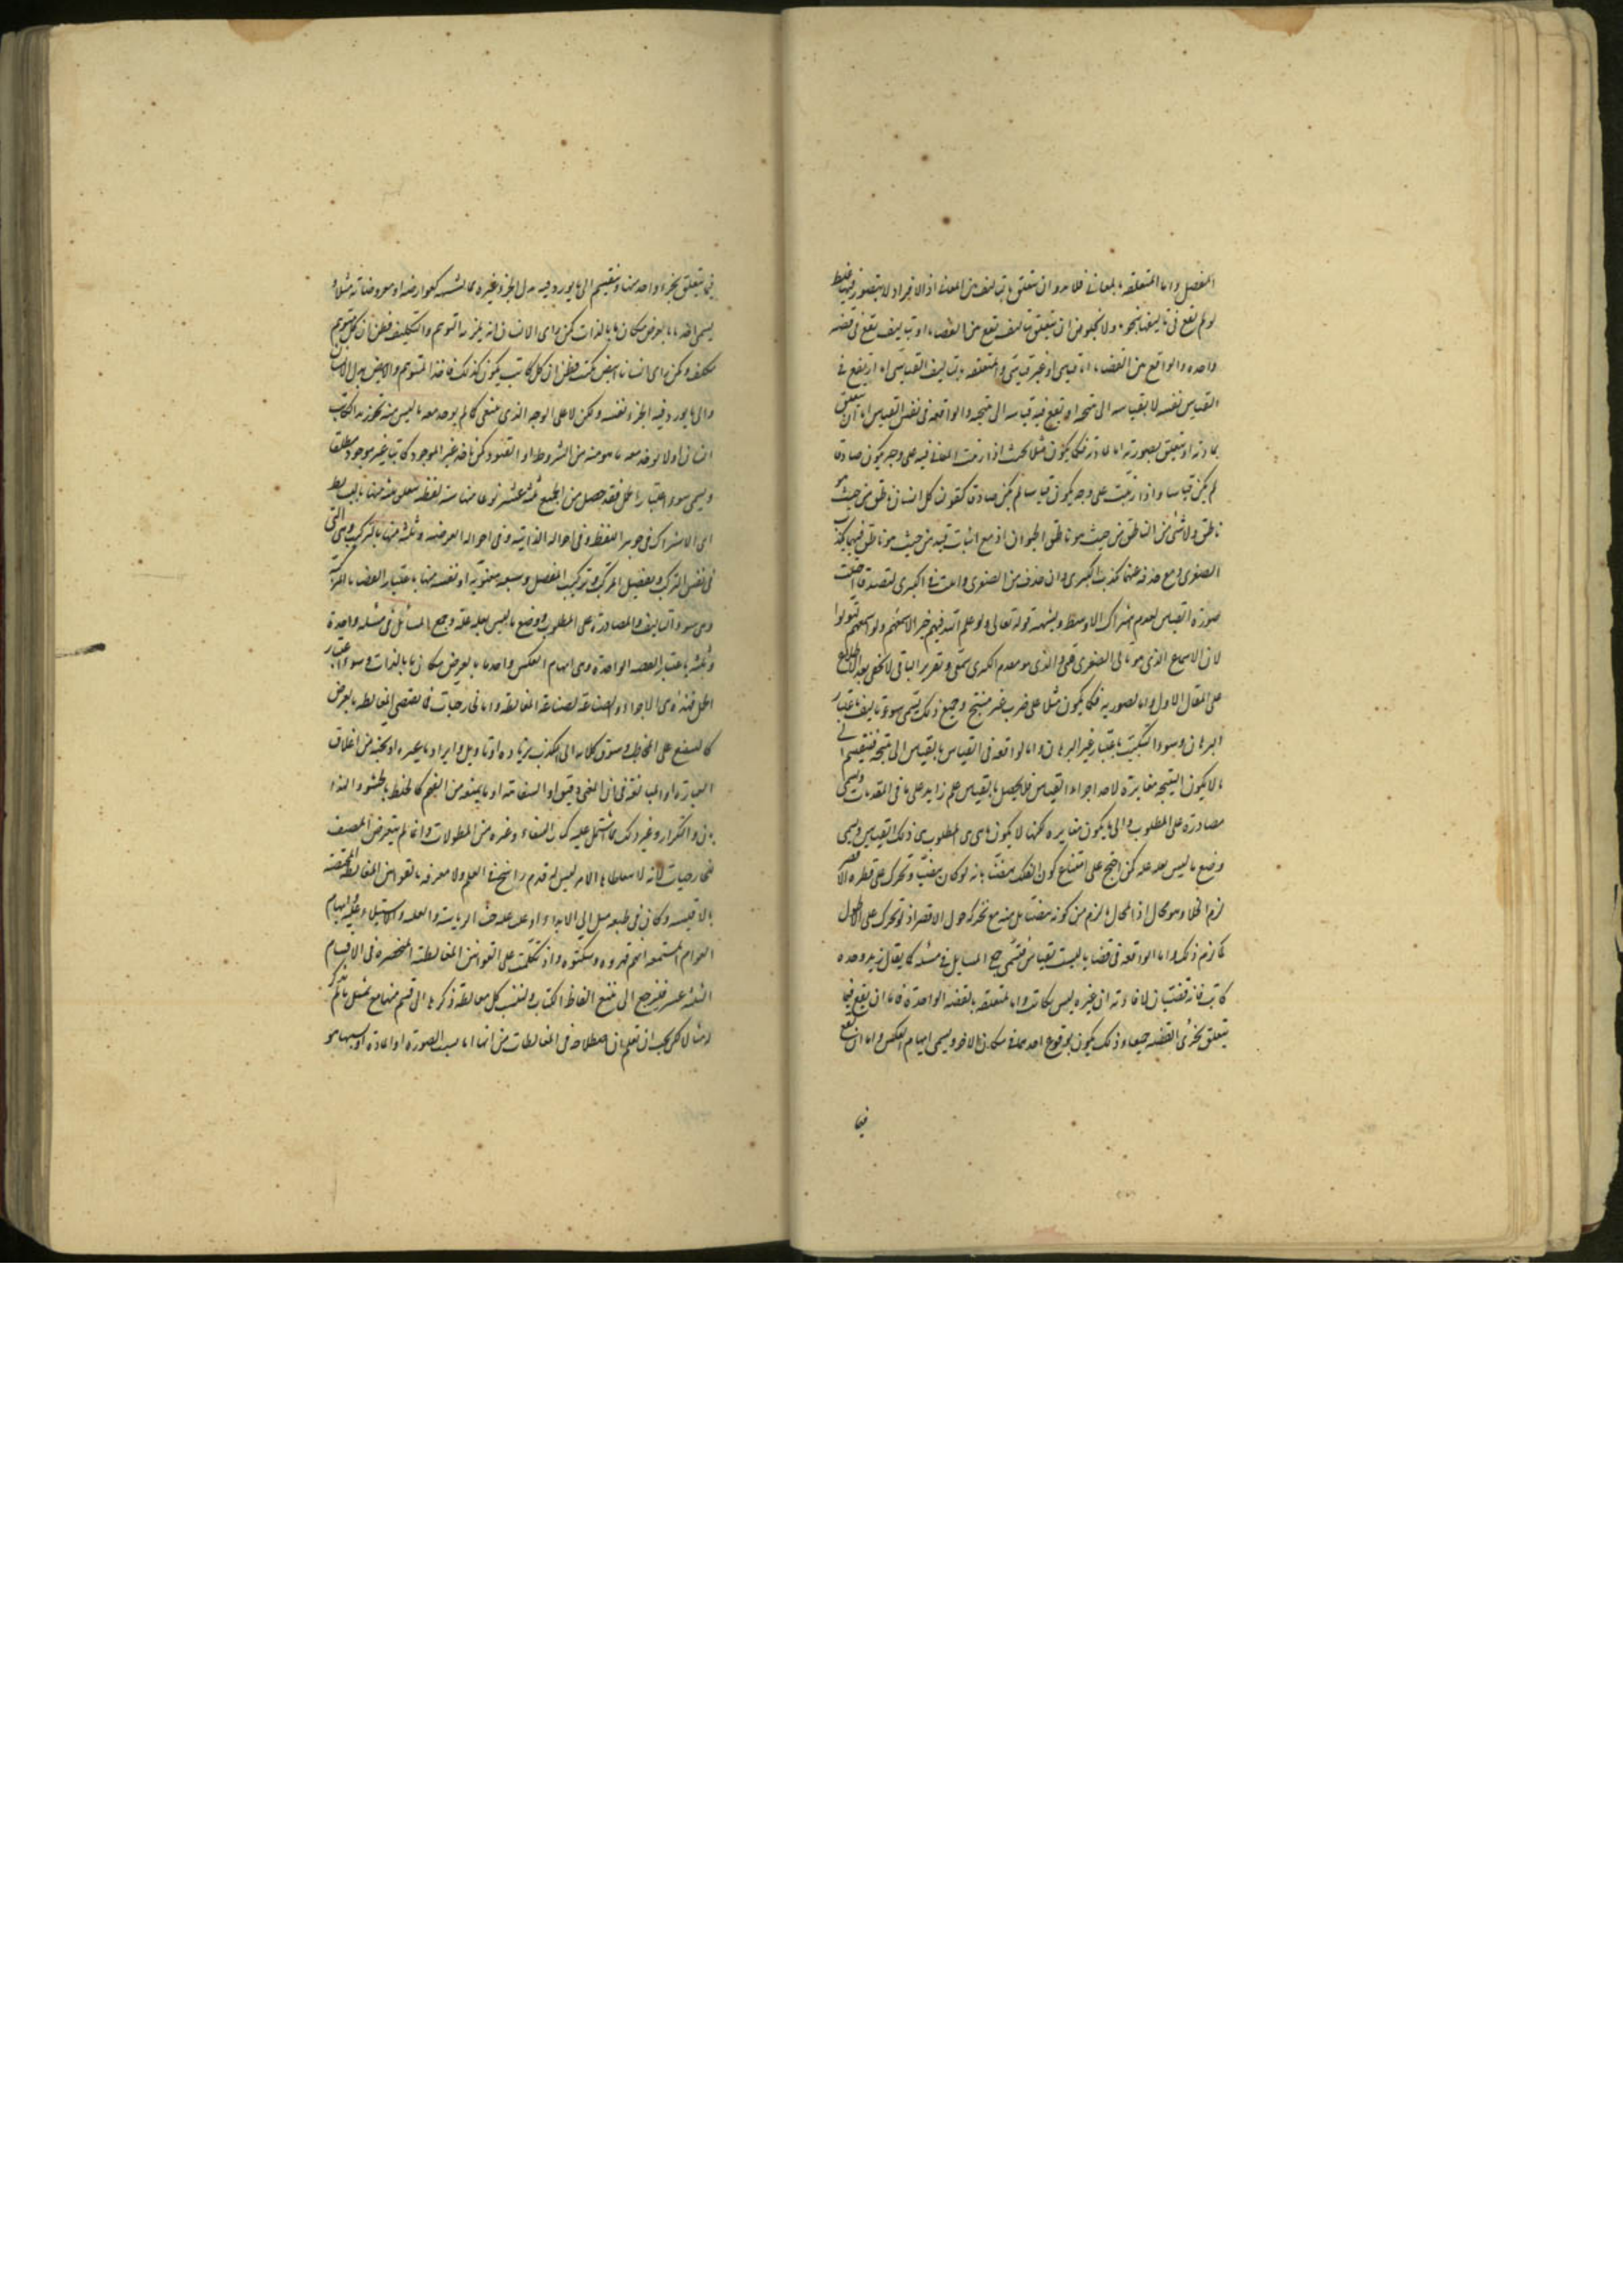 المفصل واما المتعلقة بالمعاني فلابد وان تتعلق بتاليف من المعاني اذ الافراد لا يتصور فيها غلط
لو لم تقع في تاليفها بنحو ما ولا يخلو من ان تتعلق بتاليف يقع بين القضايا او بتاليف يقع في قضية
واحدة والواقع بين القضايا اما قياسي او غير قياسي والمتعلقة بالتاليف القياسي اما ان يقع في
القياس نفسه لا بقياسه الى نتيجة او تقع فيه قياسه الى نتيجة والواقعة في نفس القياس اما ان يتعلق
بمادته او يتعلق بصورته اما المادية فكما يكون مثلا بحيث اذا رتبت المعاني فيه على وجه يكون صادقا
لم يكن قياسا واذا رتبت على وجه يكون قياسا لم يكن صادقا كقولنا كل انسان ناطق من حيث هو
ناطق ولا شئ من الناطق من حيث هو ناطق بحيوان اذ مع اثبات قيد من حيث هو ناطق فيهما يكذب
الصغرى ومع حذفه عنهما يكذب الكبرى وان حذف من الصغرى واثبت في الكبرى لتصدقا اختلت
صورة القياس لعدم اشتراك الاوسط ويشبهه قوله تعالى ولو علم الله فيهم خيرا لاسمعهم ولو اسمعهم لتولوا
لان الاسماع الذي هو تالي الصغرى قلبي والذي هو مقدم الكبرى سمعي وتقرير الباقي لا يخفى بعد الاطلاع
على المقال الاول واما الصورية فكما يكون مثلا على ضرب غير منتج وجميع ذلك يسمى سوء تاليف باعتبار
البرهان وسوء التبكيت باعتبار غير البرهان واما الواقعة في القياس بالقياس الى نتيجة فتنقسم الى
ما لا يكون النتيجة مغايرة لاحد اجزاء القياس فلا يحصل بالقياس علم زايد على ما في المقدمات ويسمى
مصادرة على المطلوب والى ما يكون مغايرة لكنها لا يكون ما هي المطلوب من ذلك القياس ويسمى
وضع ما ليس بعلة علة كمن احتج على امتناع كون الفلك بيضيا بانه لو كان بيضيا وتحرك على قطره الاقصر
لزم الخلا وهو محال اذ المحال ما لزم من كونه بيضيا بل منه مع تحركه حول الاقصر اذ لو تحرك على الاطول
لما لزم ذلك واما الواقعة في قضايا ليست بقياس فتسمى جمع المسايل في مسئلة كما يقال زيد وحده
كاتب فانه قضيتان لافادته ان غيره ليس بكاتب واما المتعلقة بالقضية الواحدة فاما ان يقع فيما
يتعلق بجزئي القضية جميعا وذلك يكون بوقوع احدهما في مكان الاخر ويسمى ايهام العكس واما ان يقع
فيما
فيما يتعلق بجزء واحد منها وينقسم الى ما يورد فيه بدل الجزء غيره مما يشبهه كعوارضه او معروضاته مثلا
يسمى اخذ ما بالعرض مكان ما بالذات كمن راى الانسان انه يلزمه التوهم والتكليف فظن ان كل متوهم
مكلف وكمن راى انسانا ابيض يكتب فظن ان كل كاتب يكون كذلك فاخذ المتوهم والابيض بدل الانسان
والى ما يورد فيه الجزء نفسه ولكن لا على الوجه الذي ينبغي كما لم يوجد معه ما ليس منه نحو زيد الكاتب
انسان او لا يوخذ معه ما هو منه من الشروط او القيود كمن ياخذ غير الموجود كاتبا غير موجود مطلقا
ويسمى سوء اعتبار الحمل فقد حصل من الجميع ثلثة عشر نوعا منها ستة لفظية يتعلق ثلثة منها بالبسائط
هي الاشتراك في جوهر اللفظ وفي احواله الذاتية وفي احواله العرضية وثلثة منها بالتركيب وهي التي
في نفس التركيب وتفصيل المركب وتركيب المفصل وسبعة معنوية اربعة منها باعتبار القضايا المركبة
وهي سوء التاليف والمصادرة على المطلوب ووضع ما ليس بعلة علة وجمع المسائل في مسئلة واحدة
وثلثة باعتبار القضية الواحدة وهي ايهام العكس واخذ ما بالعرض مكان ما بالذات وسوء اعتبار
الحمل فهذه هي الاجزاء الصناعة لصناعة المغالطة واما الخارجيات فما يقتضي المغالطة بالعرض
كالتشنيع على المخاطب وسوق كلامه الى الكذب بزيادة او تاويل وايراد ما يحيره او يجبنه من اغلاق
العبارة او المبالغة في ان المعنى دقيق او السفاهة او ما يمنعه من الفهم كالخلط بالحشو والهذ
يان والتكرار وغير ذلك مما اشتمل عليه كتاب الشفاء وغيره من المطولات وانما لم يتعرض المصنف
للخارجيات لانه لا يتعاطاها الا من ليس له قدم راسخ في العلم ولا معرفة بالقوانين المغالطة المختصة
بالاقيسة وكان في طبعه ميل الى الايذاء او غلب عليه حب الرياسة والغلبة والاستيلاء وغلبة ايهام
العوام المستمعة انهم قهروه وسكتوه واذ تكلمت على القوانين المغالطة المنحصرة في الاقسام
الثلثة عشر فليرجع الى تتبع الفاظ الكتاب ولينسب كل مغالطة ذكرها الى قسم منها مع تمثيل ما لم يذكر
له مثالا لكن يجب ان تعلم ان اصطلاحه في المغالطات من انها اما بسبب الصورة او المادة او سببها هو